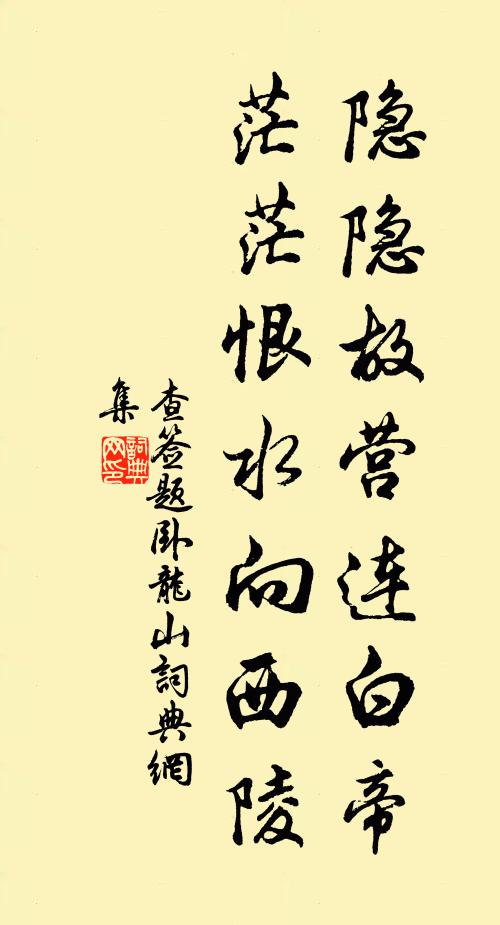 隐隐故营连白帝
茫茫恨水向西陵
查签题卧龍山詞典網
集
詞典网印